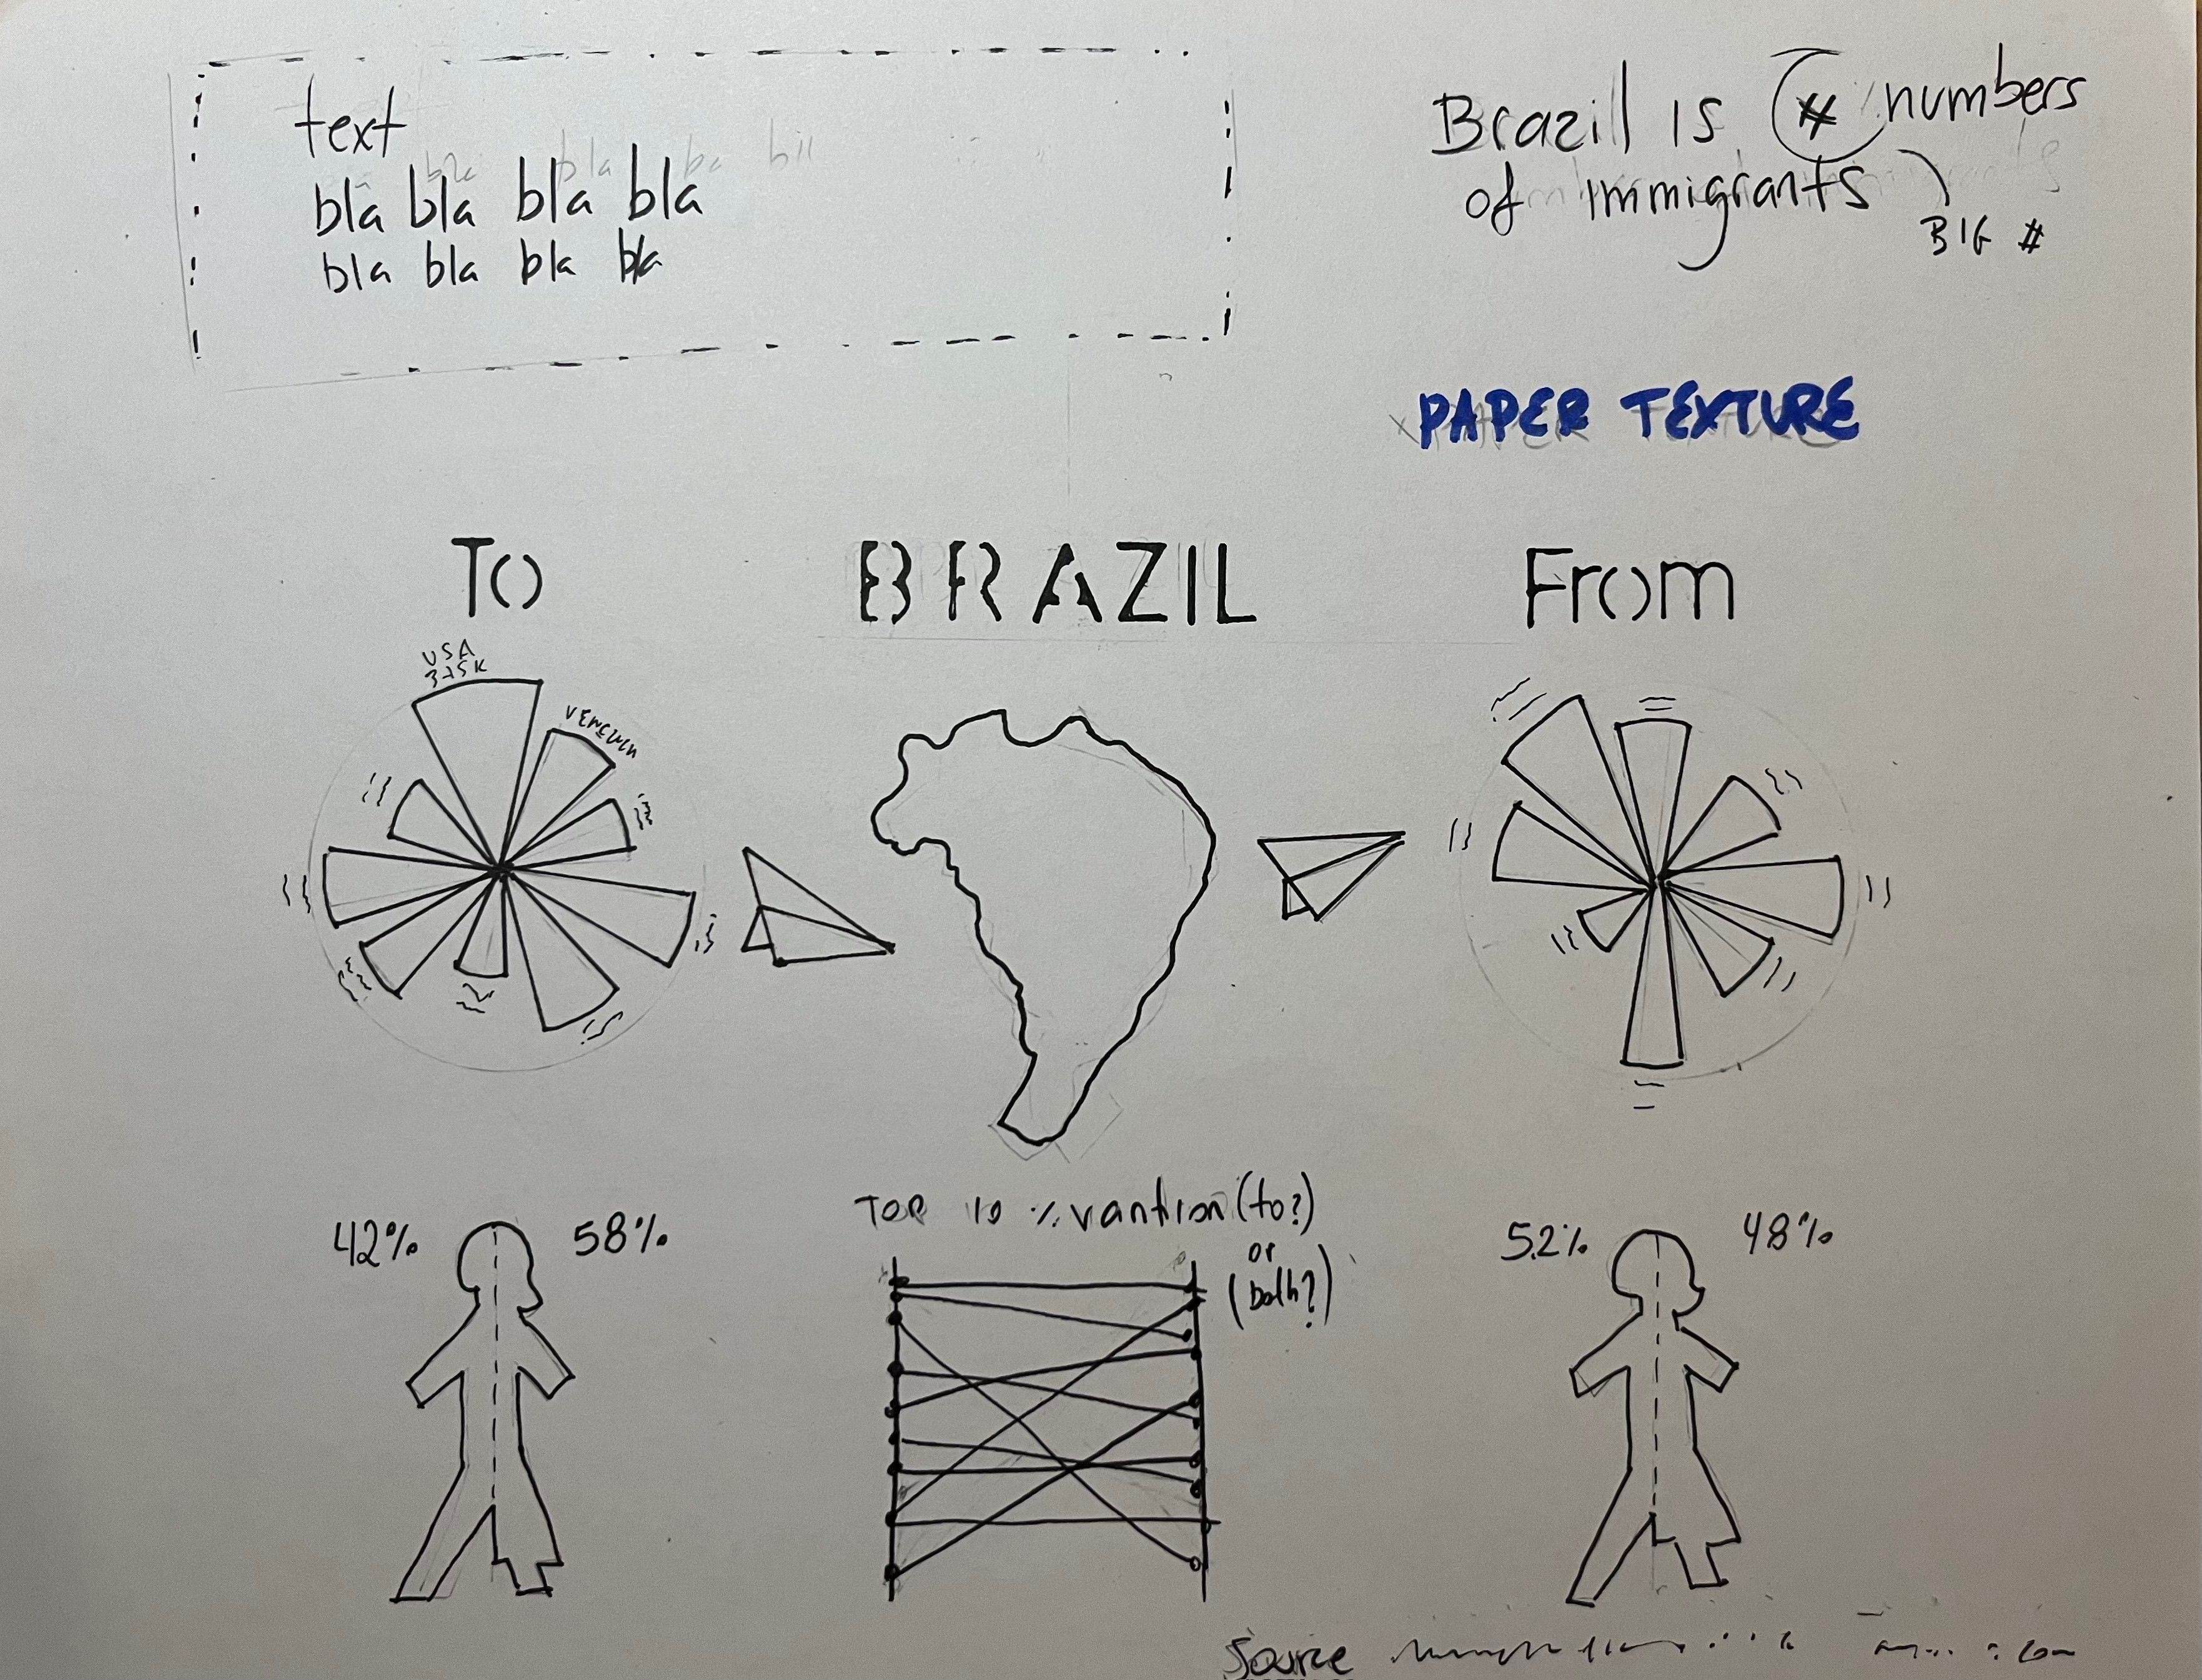 text
bla bla bla bla
bla bla bla bla
Brazil is # numbers
of immigrants
BIG #
PAPER TEXTURE
To
BRAZIL
From
USA
42%
58%
TOP 10 % (to?)
or
(both?)
52%
48%
Source